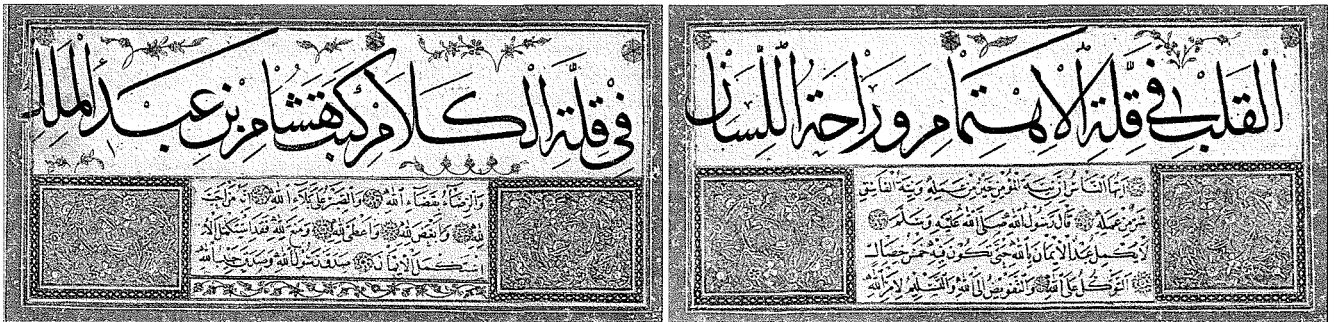 القلب في قلة الاهتمام وراحة اللسان
ايها الناس ان نية المؤمن خير من عمله ونية الفاسق
شر من عمله قال رسول الله صلى الله عليه وسلم
لا يكمل عبد الايمان بالله حتى يكون فيه خمس خصال
التوكل على الله والتفويض الى الله والتسليم لامر الله
في قلة الكلام كتب هشام بن عبد الملك
والرضاء بقضاء الله والصبر على بلاء الله انه من احب
لله وابغض لله واعطى لله ومنع لله فقد استكمل الا
استكمل الايمان صدق رسول الله وصدق حبيب الله